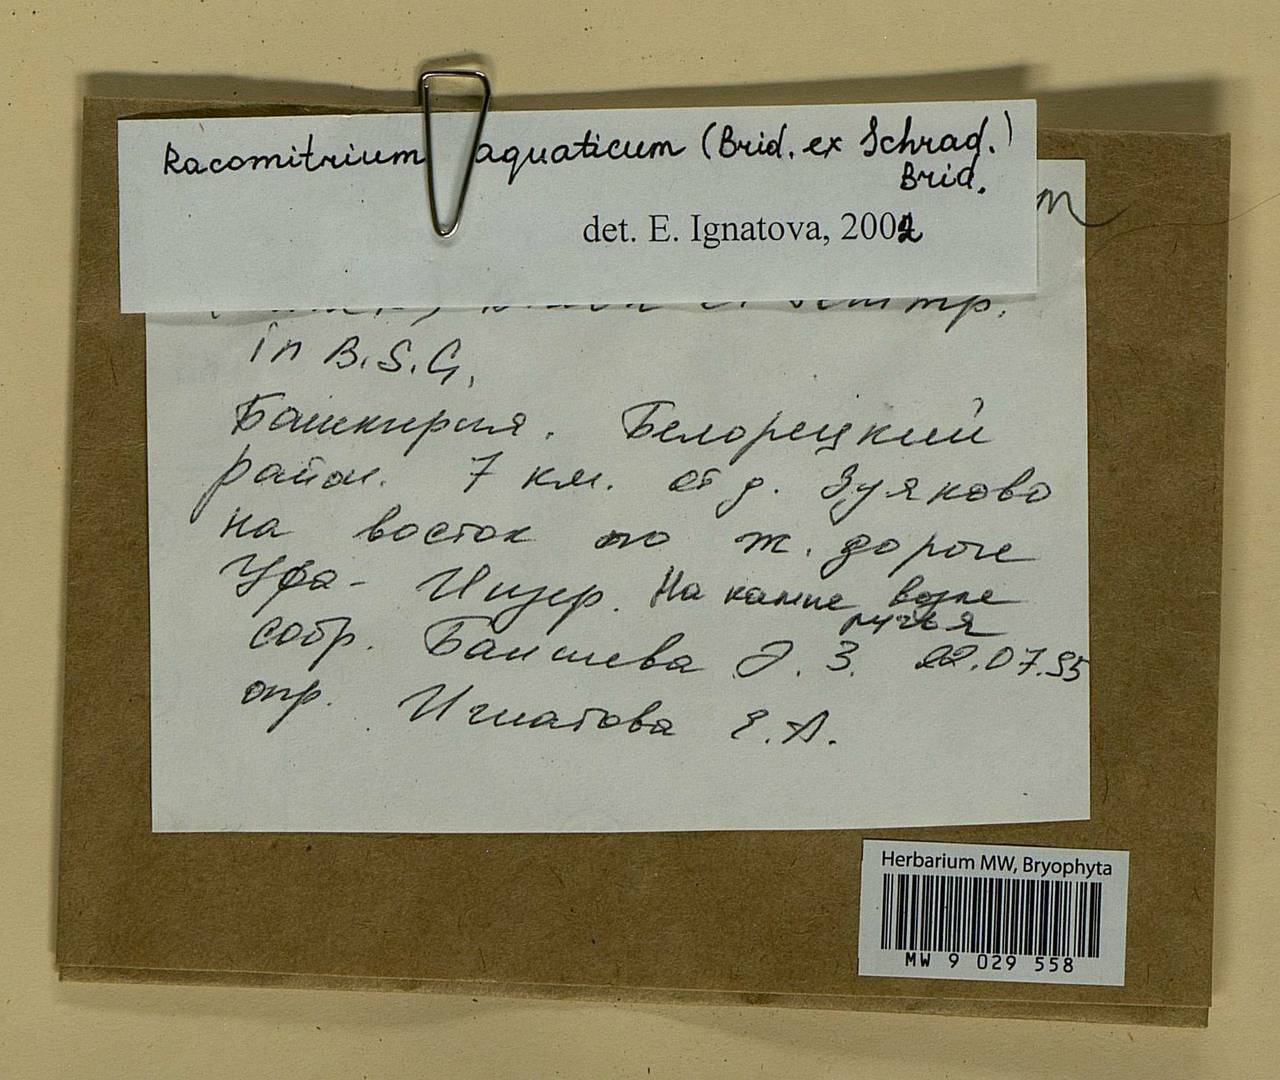 Racomitrium aquaticum (Brid. ex Schrad.)
Brid.
det. E. Ignatova, 2002
m
in B.S.G.
Башкирия. Белорецкий
район. 7 км. от д. Зуяково
на восток по ж. дороге
Уфа- Инзер. На камне возле
ручья
собр. Баишева Э. З. 22.07.95
опр. Игнатова Е.А.
Herbarium MW, Bryophyta
MW 9 029 558